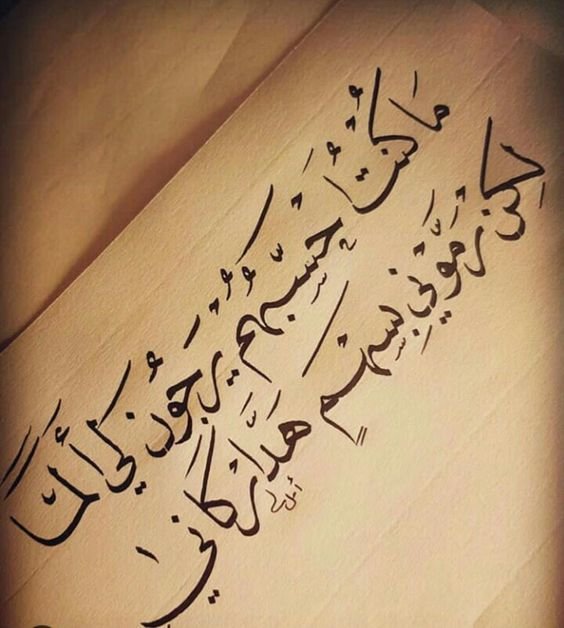 مَا كُنْتُ أحْسَبُهُم يَرْجُونَ لِي أَلَمًا
لكِنْ رَمَوْنِي بِسَهْمٍ هَدَّ أرْكَانِي